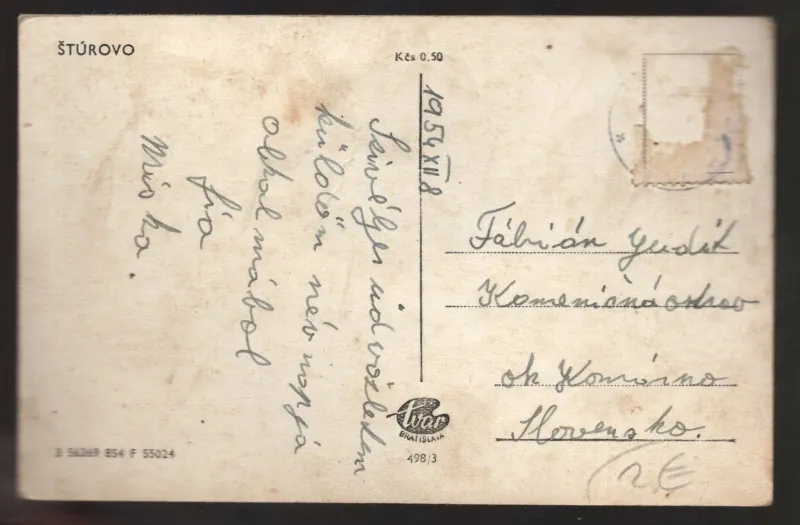 ŠTÚROVO
Kčs 0,50
1954 XII 8
Szivélyes üdvözletem
küldöm névnapja
alkalmából
fia
Miska.
Fábián Judit
Komeničná ostrov
ok Komárno
Slovensko.
tvar
BRATISLAVA
498/3
B54 F 55024
2€